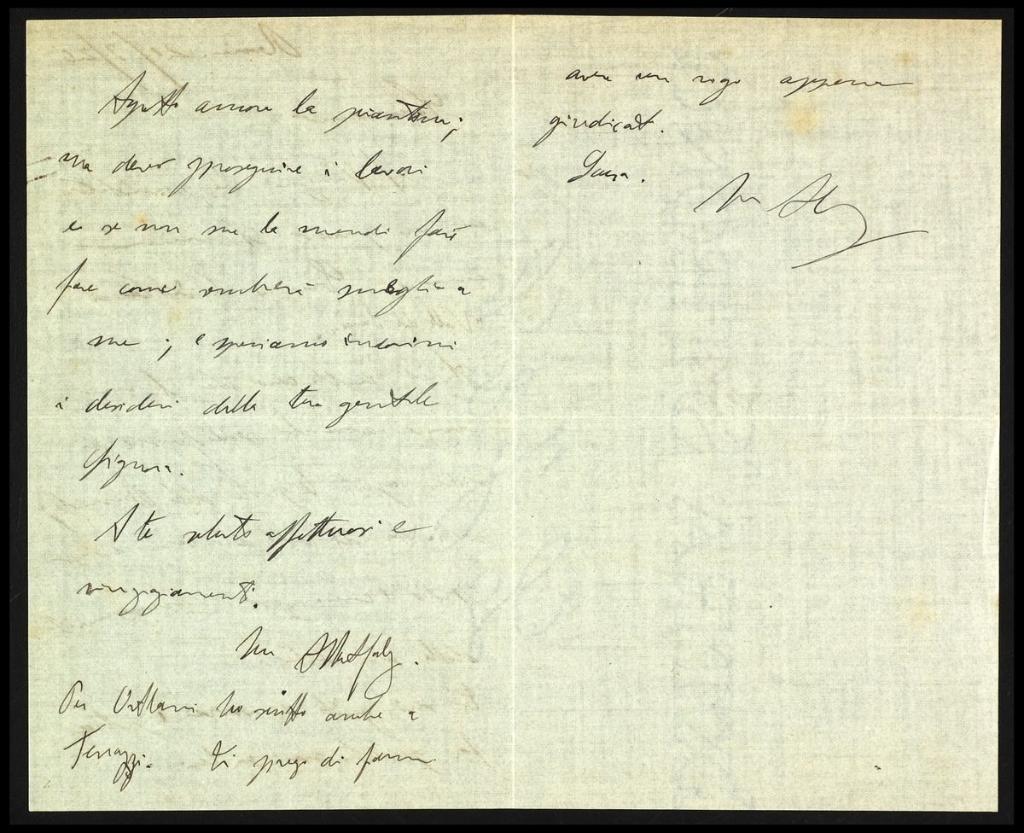 Aspetto ancora la piantina;
ma devo proseguire i lavori
e se non me la mandi farò
fare come sembrerà meglio a
me; e speriamo
i desideri della tua gentile
Signora.
A te saluti affettuosi e
ringraziamenti.
Per ho scritto anche a
Terrazzi. Ti prego di farmi
avere un rigo appena
giudicat.
Scusa.